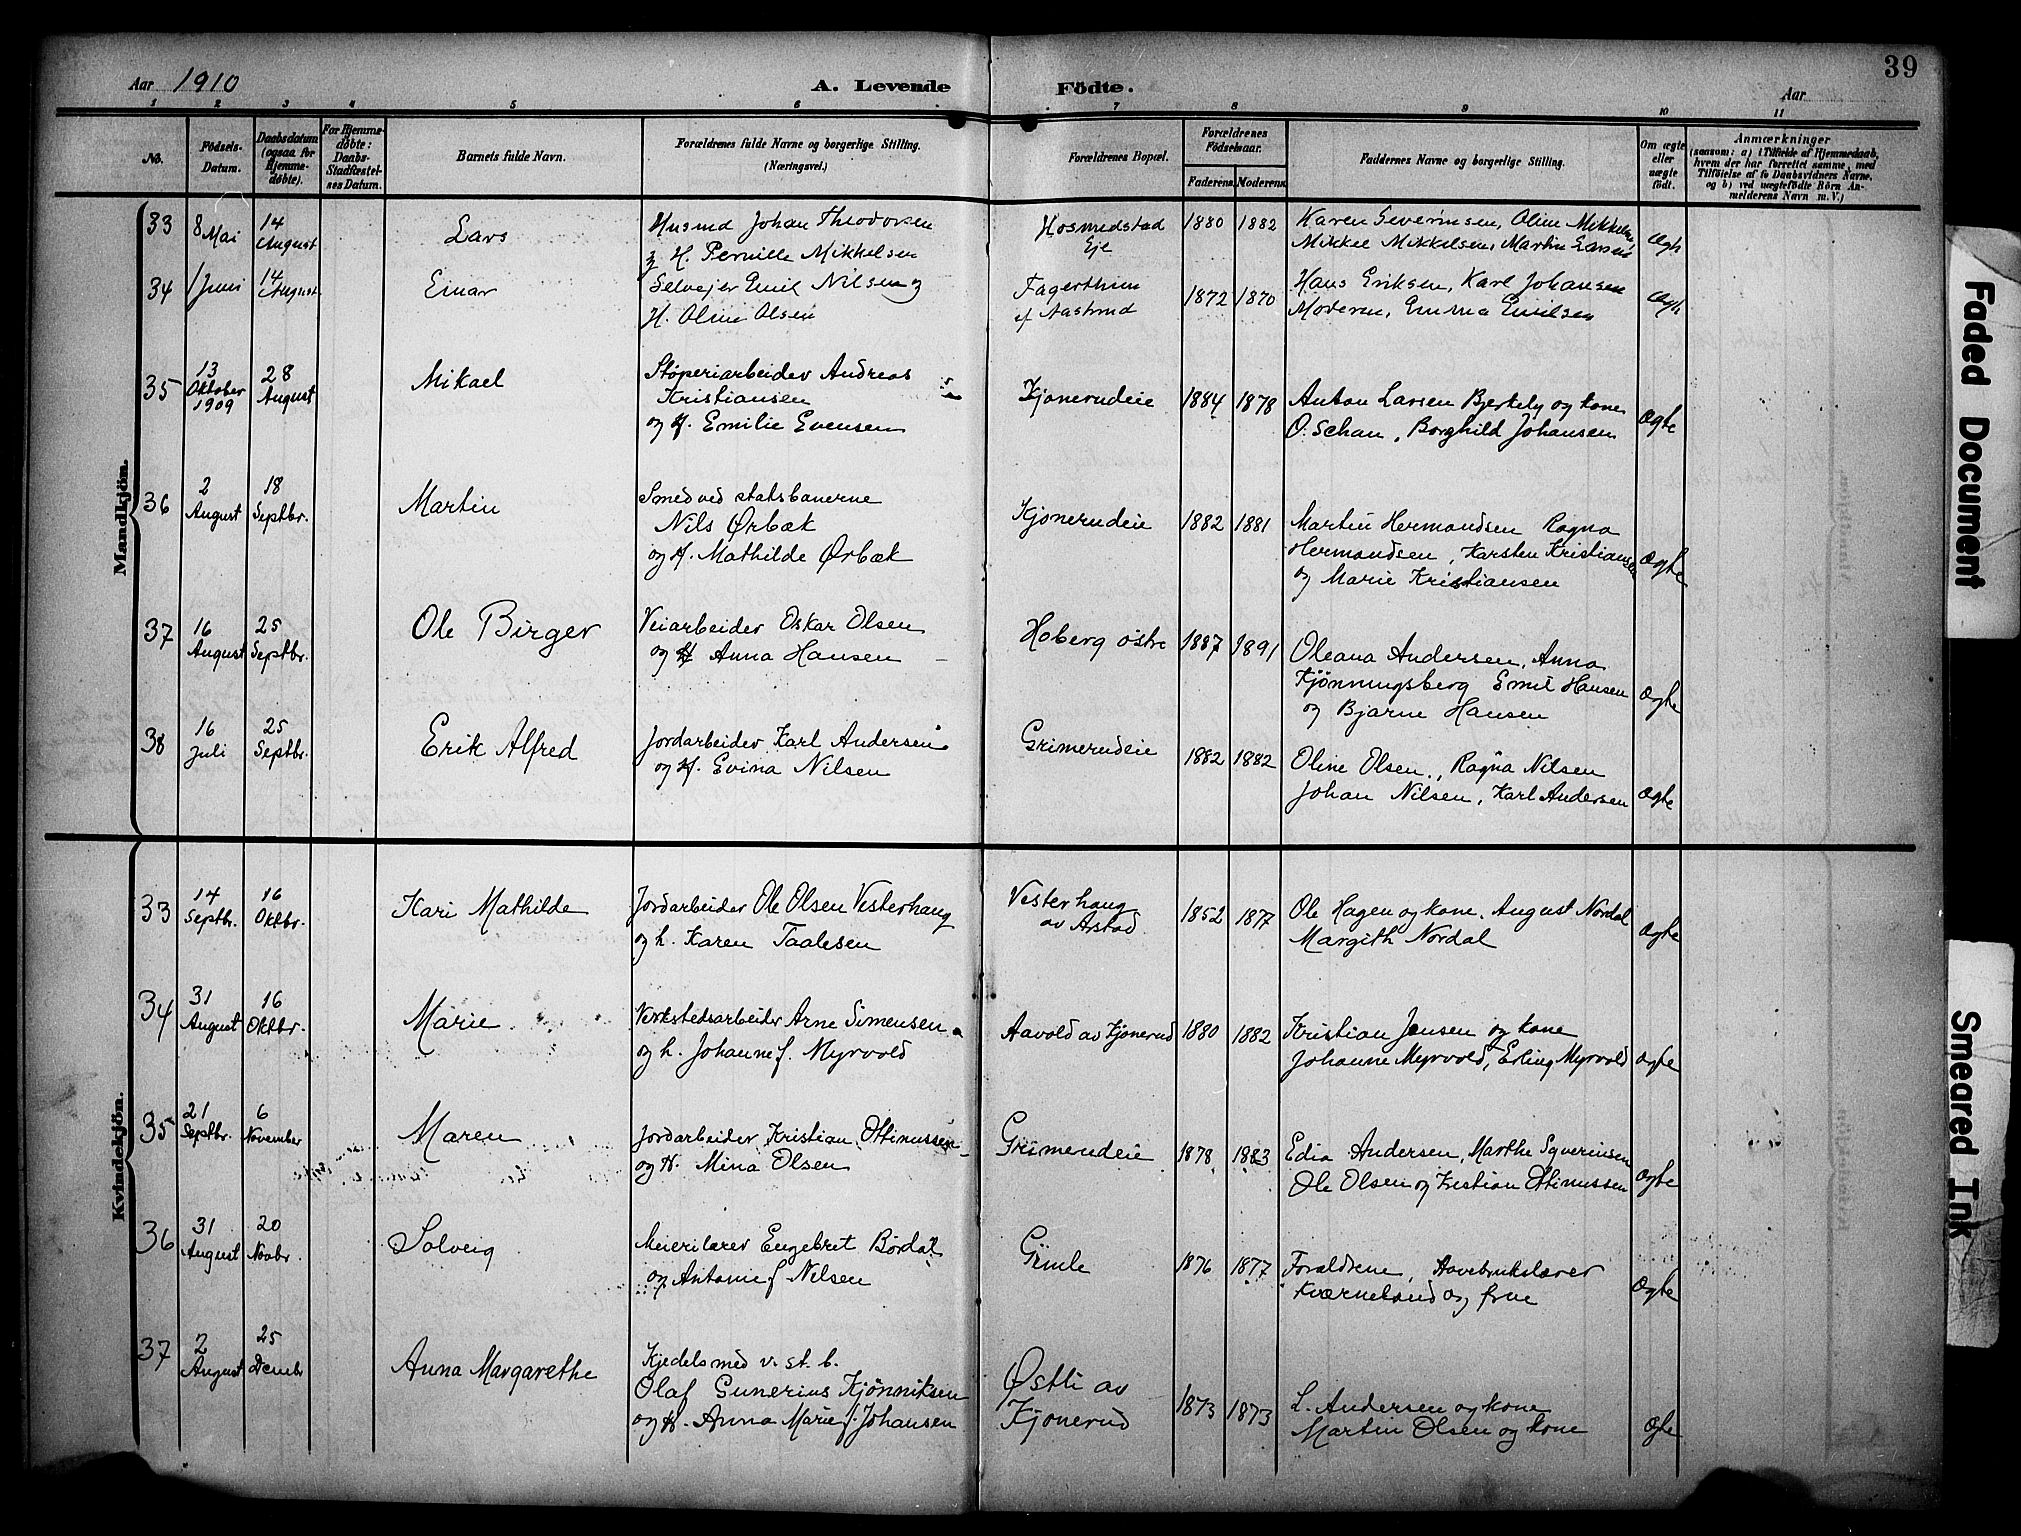 39
Aar 1910
A. Levende Fødte.
Aar
1 2 3 4 5 6 7 8 9 10 11
No.
Fødsels-Datum.
Daabsdatum (ogsaa for Hjemme-døbte).
For Hjemme-døbte: Daabs-Stadfæstel-ses Datum.
Barnets fulde Navn.
Forældrenes fulde Navne og borgerlige Stilling.
(Næringsvei.)
Forældrenes Bopæl.
Forældrenes Fødselsaar.
Faderens. Moderens.
Faddernes Navne og borgerlige Stilling.
Om ægte eller uægte født.
Anmærkninger
(saasom: a) i Tilfælde af Hjemmedaab,
hvem der har forrettet samme, med
Tilføielse af to Daabsvidners Navne,
og b) ved uegtefødte Børn An-
melderens Navn m. V.)
Mandkjøn.
33 8 Mai 14 August Lars
Husmd Johan Theodorsen
g H. Pernille Mikkelsen
Hosmedstad
Eje
1880 1882
Karen Severinsen, Oline Mikkelsen,
Mikkel Mikkelsen, Martin Larsen
Ægte
34 1 Juni 14 August Einar
Selvejer Emil Nilsen og
H. Oline Olsen
Fagerthim
af Aastrud
1872 1870
Hans Eriksen, Karl Johansen
Moderen, Emma Emilsen
Ægte
35 13 Oktober 1909 28 August Mikael
Støperiarbeider Andreas
Kristiansen
og H. Emilie Evensen
Kjonerudeie
1884 1878
Anton Larsen Bjerkely og kone
O. Schau, Borghild Johansen
Ægte
36 2 August 18 Septbr. Martin
Smed ved statsbanerne
Nils Ørbæk
og H. Mathilde Ørbæk
Kjonerudeie
1882 1881
Martin Hermandsen Ragna
Hermandsen, Karsten Kristiansen
og Marie Kristiansen
Ægte
37 16 August 25 Septbr. Ole Birger
Veiarbeider Oskar Olsen
og H Anna Hansen
Hoberg østre
1887 1891
Oleana Andersen, Anna
Kjønningsberg Emil Hansen
og Bjarne Hansen
Ægte
38 16 Juli 25 Septbr. Erik Alfred
Jordarbeider Karl Andersen
og H. Evina Nilsen
Grimerudeie
1882 1882
Oline Olsen, Ragna Nilsen
Johan Nilsen, Karl Andersen
Ægte
Kvindekjøn.
33 14 Septbr. 16 Oktbr. Kari Mathilde
Jordarbeider Ole Olsen Vesterhaug
og h. Karen Taalesen
Vesterhaug
av Arstad
1852 1877
Ole Hagen og kone, August Nordal
Margith Nordal
Ægte
34 31 August 16 Oktbr. Marie
Verkstedsarbeider Arne Simensen
og h. Johanne f. Myrvold
Aavold av Kjonerud
1880 1882
Kristian Jensen og kone
Johanne Myrvold, Erling Myrvold
Ægte
35 21 Septbr. 6 November Maren
Jordarbeider Kristian Ottinussen
og H. Mina Olsen
Grimerudeie
1878 1883
Edia Andersen, Marthe Syverinsen
Ole Olsen og Kristian Ottinussen
Ægte
36 31 August 20 Novbr. Solveig
Meierilærer Engebret Børdal
og Antonie f Nilsen
Gimle
1876 1877
Forældrene, Havebrukslærer
Kværneland og frue
Ægte
37 2 August 25 Dcembr Anna Margarethe
Kjedelsmed v. st. b.
Olaf Gunerius Kjønniksen
og H. Anna Marie f. Johansen
Østli av
Kjonerud
1873 1873
L. Andersen og kone
Martin Olsen og kone
Ægte
Faded Document
Smeared Ink